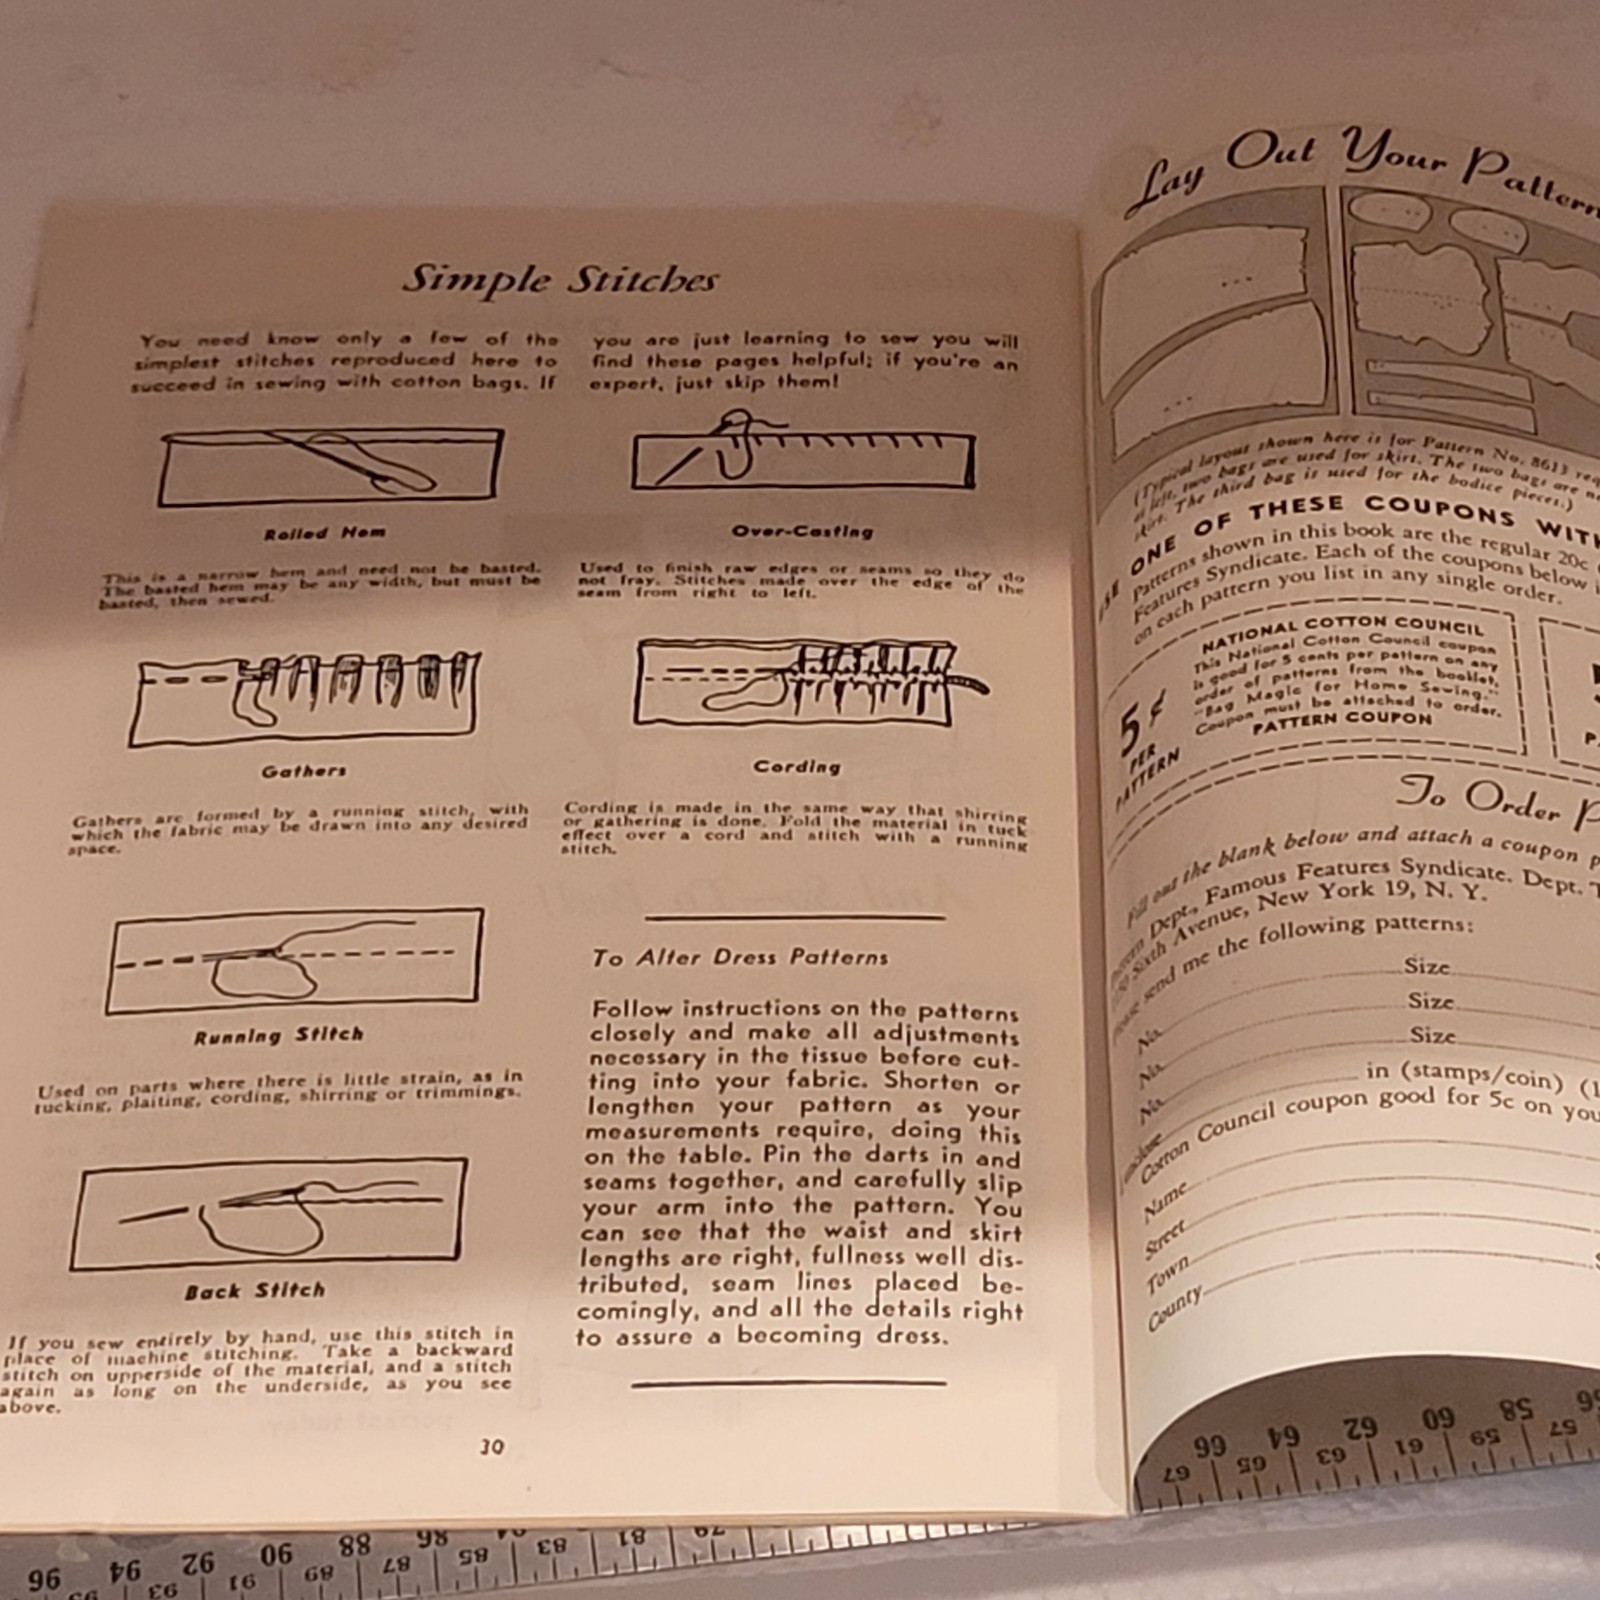 Simple Stitches
You need know only a few of the
simplest stitches reproduced here to
succeed in sewing with cotton bags. If
you are just learning to sew you will
find these pages helpful; if you're an
expert, just skip them!
Rolled Hem
This is a narrow hem and need not be basted.
The basted hem may be any width, but must be
basted, then sewed.
Over-Casting
Used to finish raw edges or seams so they do
not fray. Stitches made over the edge of the
seam from right to left.
Gathers
Gathers are formed by a running stitch, with
which the fabric may be drawn into any desired
space.
Cording
Cording is made in the same way that shirring
or gathering is done. Fold the material in tuck
effect over a cord and stitch with a running
stitch.
Running Stitch
Used on parts where there is little strain, as in
tucking, plaiting, cording, shirring or trimmings.
Back Stitch
If you sew entirely by hand, use this stitch in
place of machine stitching. Take a backward
stitch on upperside of the material, and a stitch
again as long on the underside, as you see
above.
To Alter Dress Patterns
Follow instructions on the patterns
closely and make all adjustments
necessary in the tissue before cut-
ting into your fabric. Shorten or
lengthen your pattern as your
measurements require, doing this
on the table. Pin the darts in and
seams together, and carefully slip
your arm into the pattern. You
can see that the waist and skirt
lengths are right, fullness well dis-
tributed, seam lines placed be-
comingly, and all the details right
to assure a becoming dress.
30
Lay Out Your Pattern
(Typical layout shown here is for Pattern No. 8613
at left, two bags are used for skirt. The two bags are
skirt. The third bag is used for the bodice pieces.)
ONE OF THESE COUPONS WITH
Patterns shown in this book are the regular 20c
Features Syndicate. Each of the coupons below
on each pattern you list in any single order.
NATIONAL COTTON COUNCIL
This National Cotton Council coupon
is good for 5 cents per pattern on any
order of patterns from the booklet,
"Bag Magic for Home Sewing."
Coupon must be attached to order.
PATTERN COUPON
5¢
PER
PATTERN
To Order P
Fill out the blank below and attach a coupon
Pattern Dept., Famous Features Syndicate. Dept.
Sixth Avenue, New York 19, N. Y.
Please send me the following patterns:
No. Size
No. Size
No. Size
in (stamps/coin)
Cotton Council coupon good for 5c on
Name
Street
Town
County
96 94 92 90 88 86
93 91 89 87 85 83 81 79
66 64 62 60 58
67 65 63 61 59 57